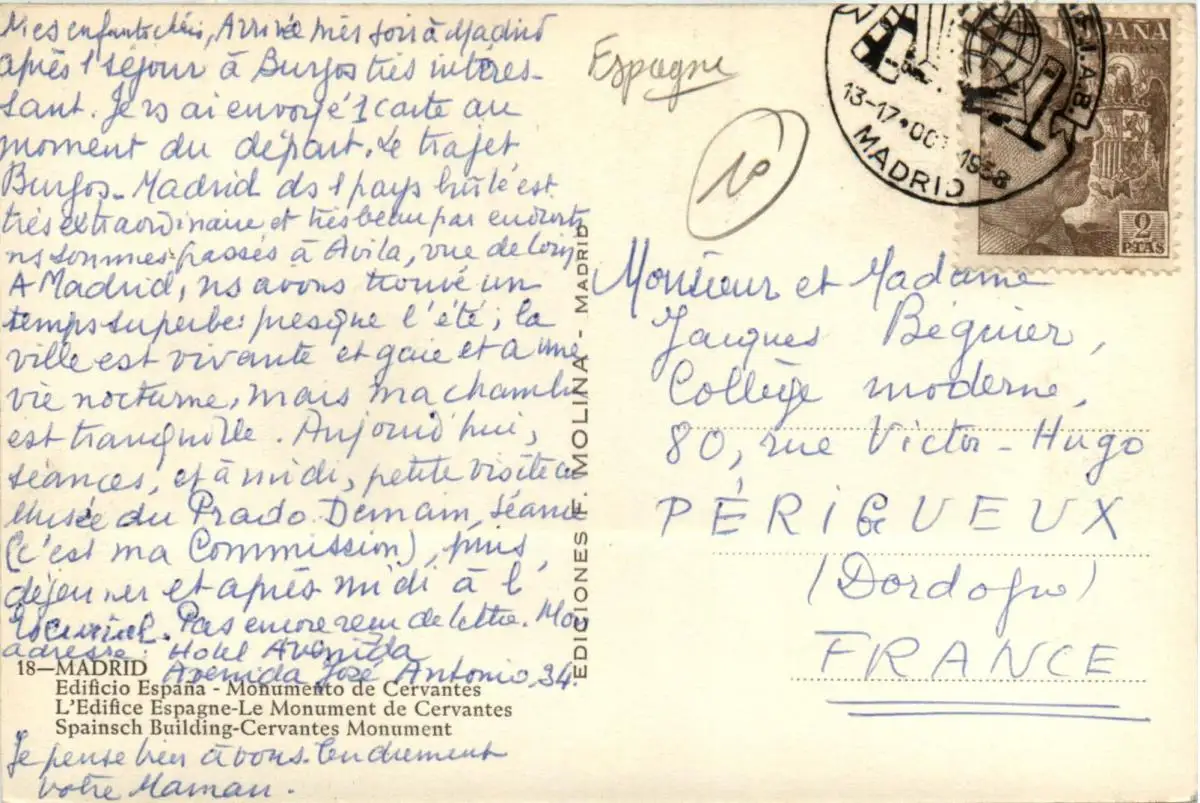 Mes enfants chéris, Arrivée hier soir à Madrid
après 1 séjour à Burgos très intéres-
sant. Je vs ai envoyé 1 carte au
moment du départ. Le trajet
Burgos-Madrid ds 1 pays brûlé est
très extraordinaire et très beau par endroits
ns sommes passés à Avila, vue de loin
A Madrid, ns avons trouvé un
temps superbe: presque l'été; la
ville est vivante et gaie et a une
vie nocturne, mais ma chambre
est tranquille. Aujourd'hui,
séances, et à midi, petite visite au
Musée du Prado. Demain, séance
(c'est ma Commission), puis
déjeuner et après midi à l'
Escurial. Pas encore reçu de lettre. Mon
adresse: Hotel Avenida
Avenida José Antonio, 34.
18—MADRID
Edificio España - Monumento de Cervantes
L'Edifice Espagne-Le Monument de Cervantes
Spainsch Building-Cervantes Monument
Je pense bien à vous. tendrement
votre Maman.
EDICIONES F. MOLINA - MADRID
Espagne
10
F.I.A.B.
13-17•OCT 1958
MADRID
ESPAÑA
CORREOS
2
PTAS
Monsieur et Madame
Jacques Béguier,
Collège moderne,
80, rue Victor-Hugo
PÉRIGUEUX
(Dordogne)
FRANCE